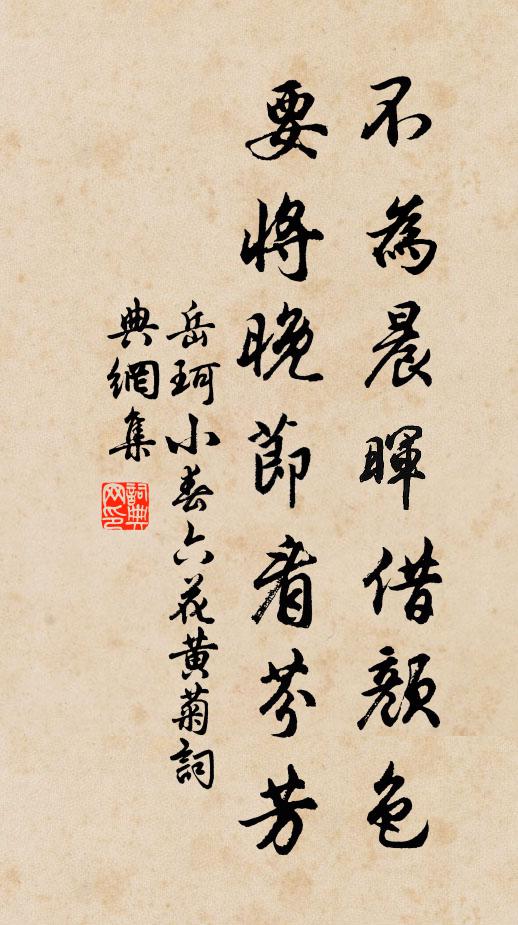 不為晨暉借顏色
要將晚節看芬芳
岳珂小春六花黃菊詞
典網集
詞典网印